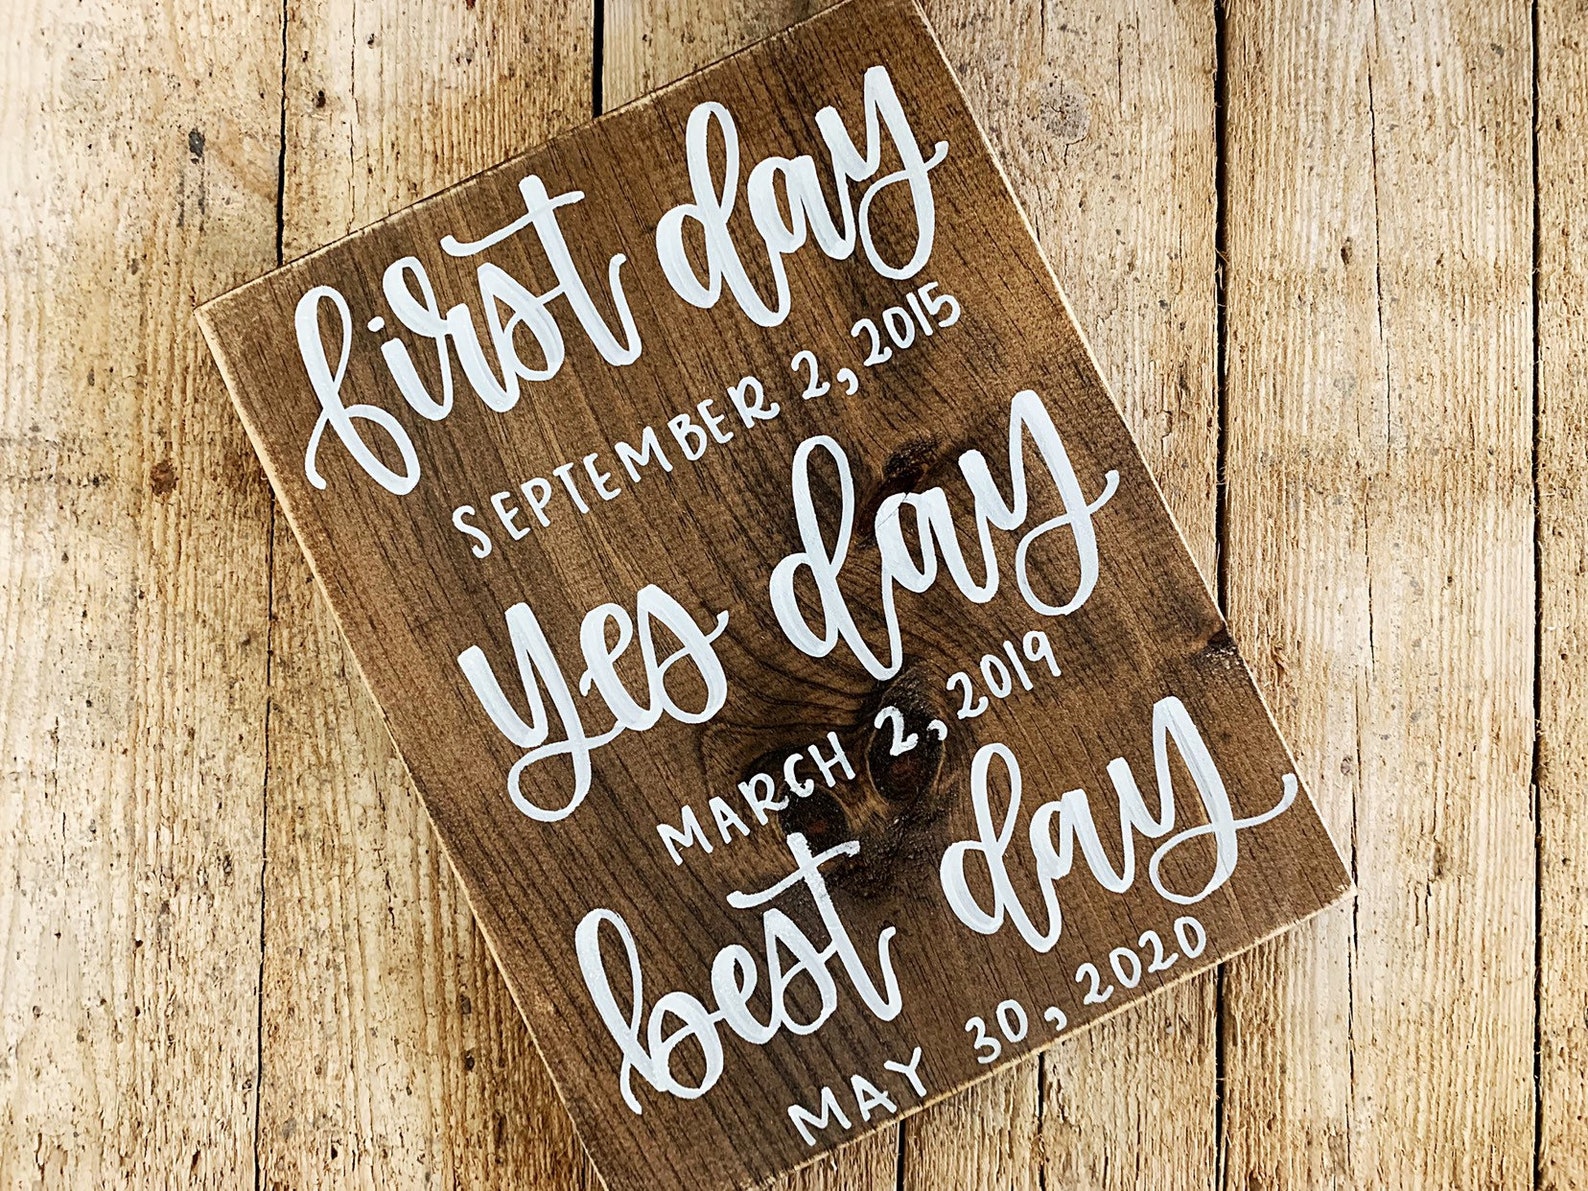 first day
SEPTEMBER 2, 2015
yes day
MARCH 2, 2019
best day
MAY 30, 2020